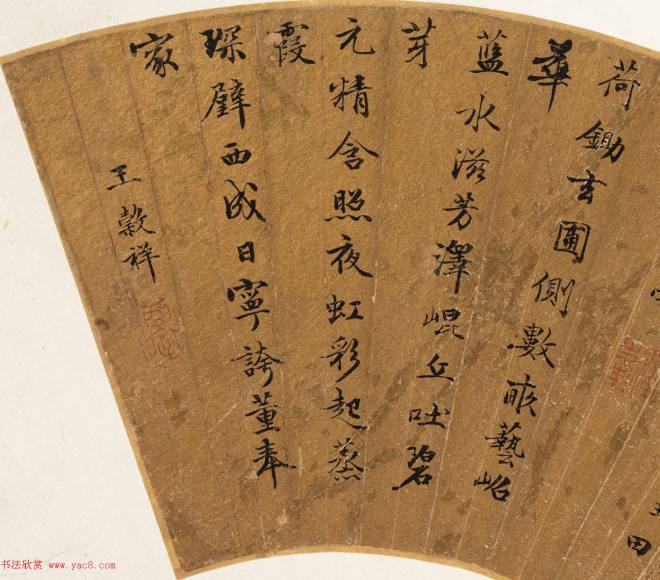 田
荷鋤玄圃側數畝藝岧
華
藍水滋芳澤崐丘吐碧
芽
元精含照夜虹彩起蒸
霞
琛璧西成日寧誇董奉
家
王穀祥
书法欣赏 www.yac8.com